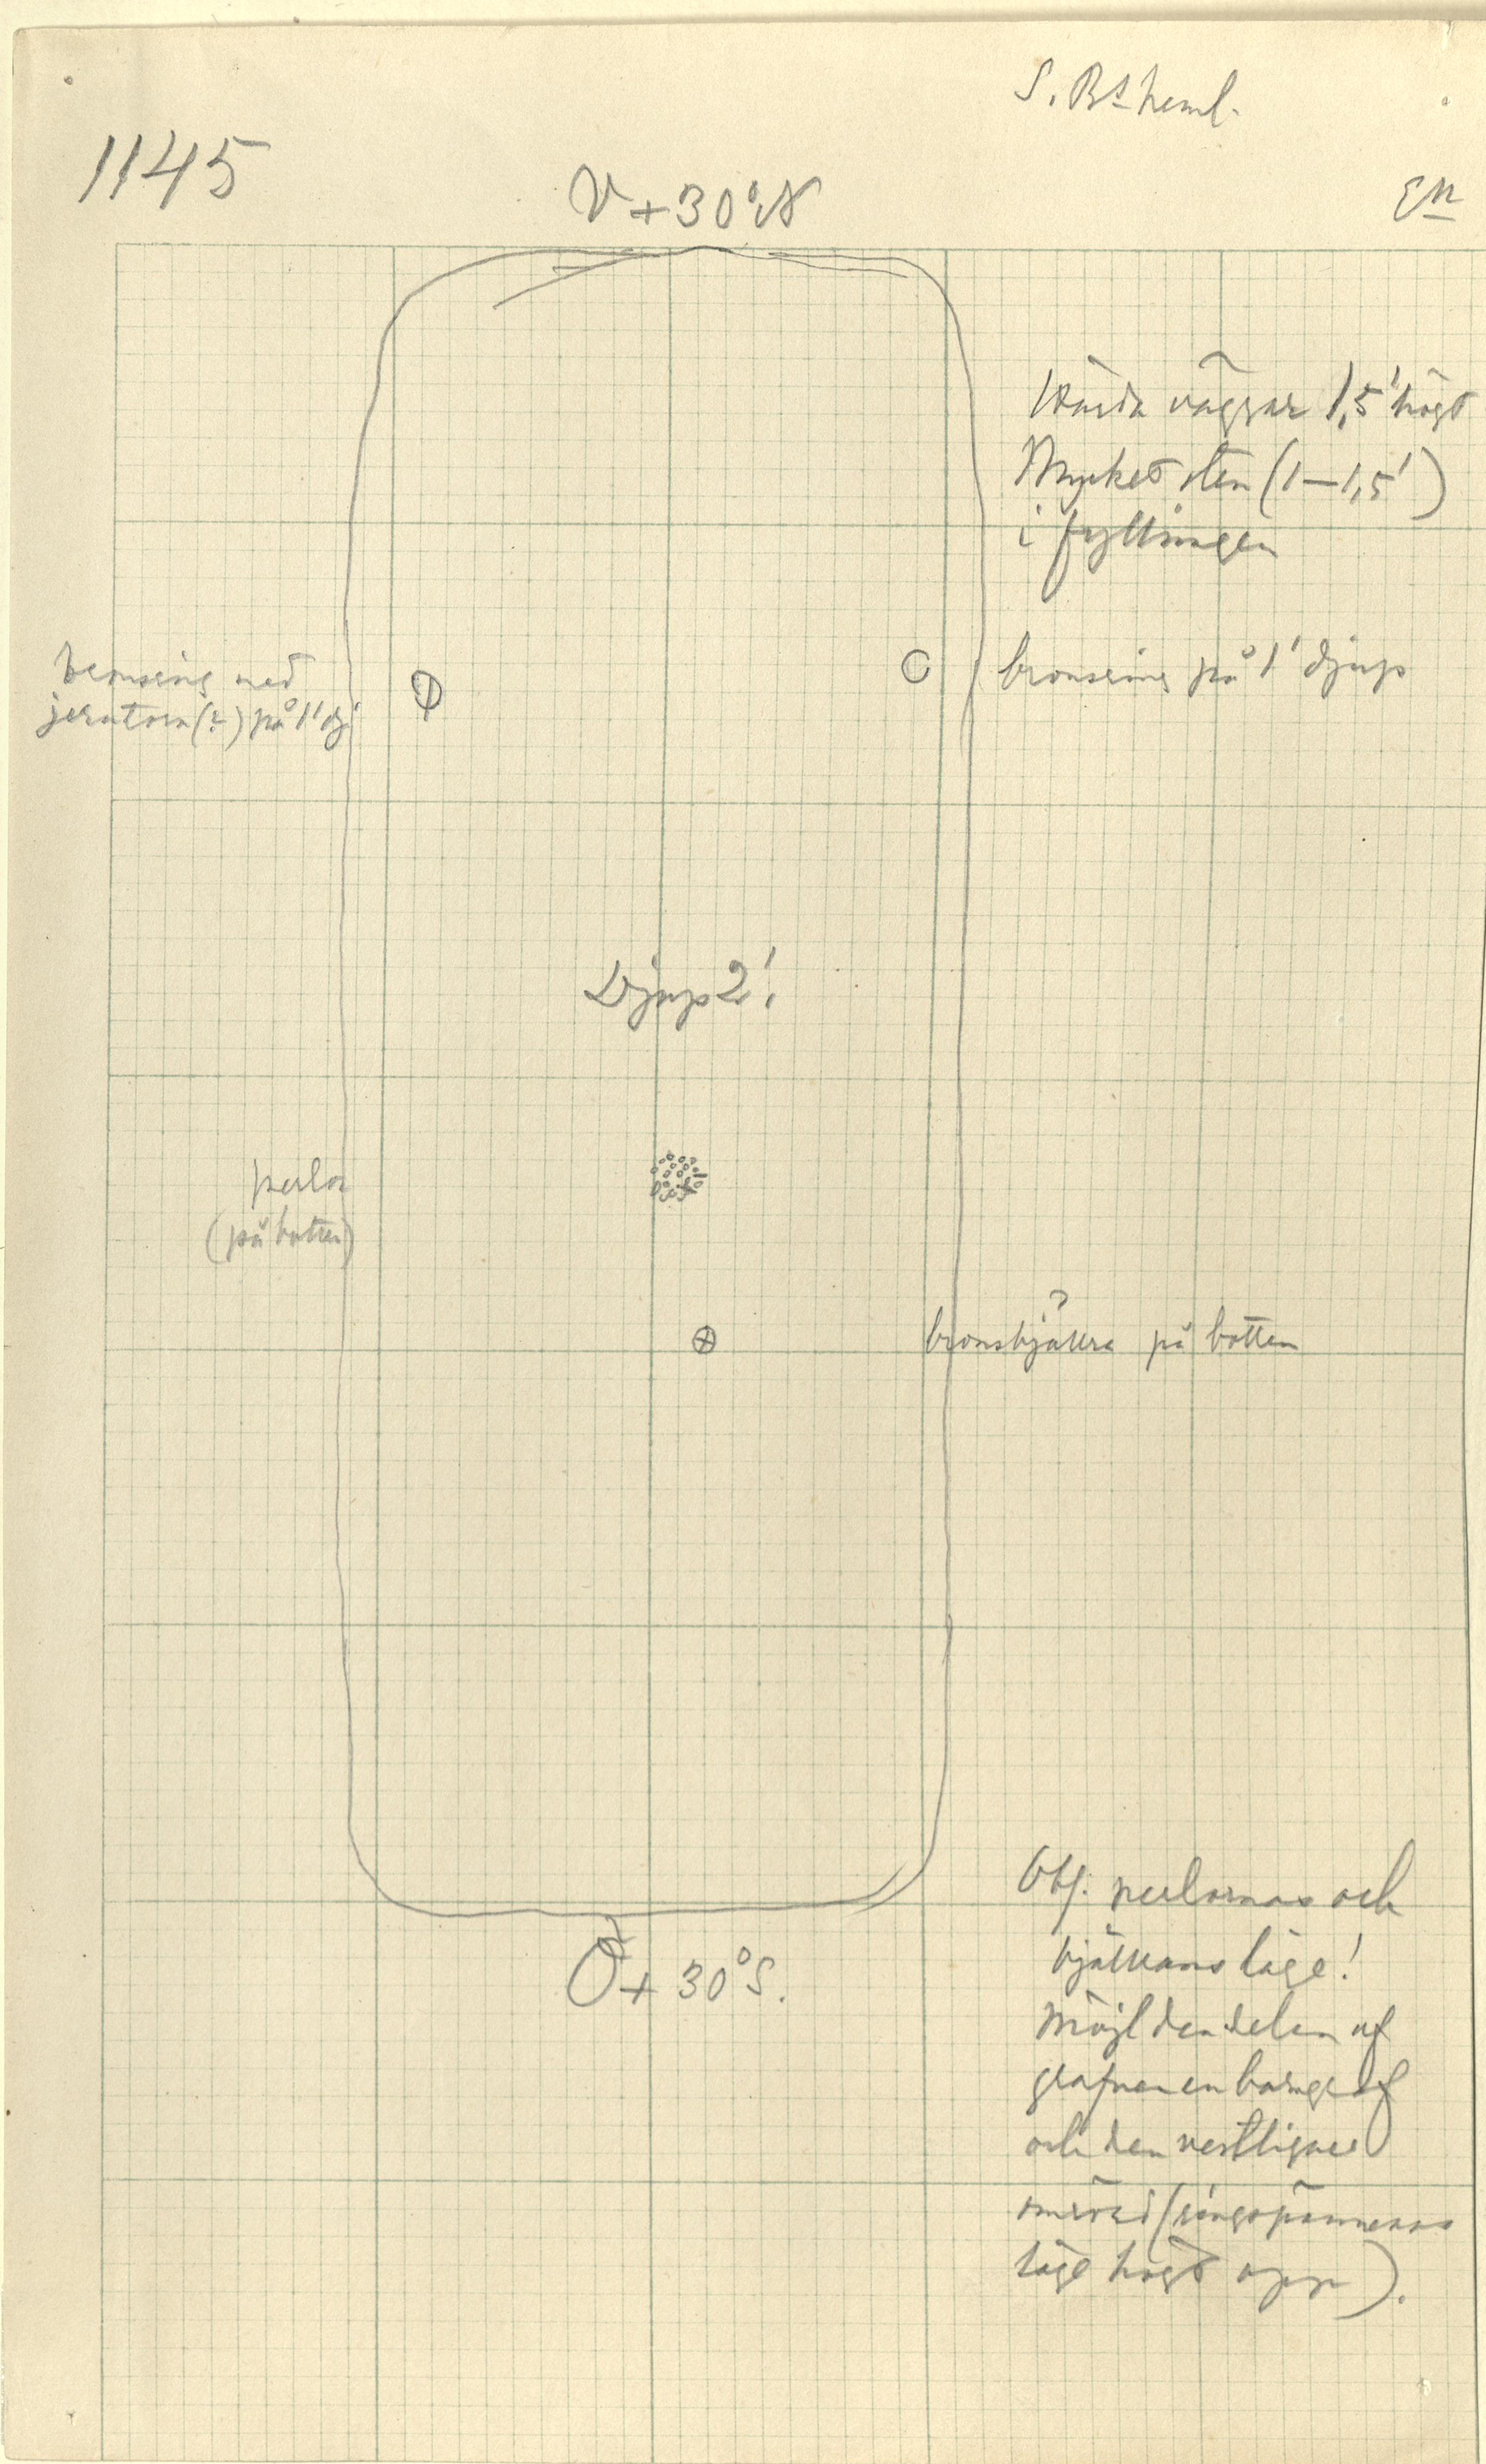 S. Bs heml.
1145
V + 30° N
En
Hårda väggar 1,5' högt
Mycket sten (1–1,5')
i fyllningen
bronsring med
jerntorn (?) på 1' dj
bronsring på 1' djup
Djup 2'.
perlor
(på botten)
bronsbjällra på botten
Ö + 30° S.
Obs. perlornas och
bjällrans läge!
Möjl den delen af
grafven en barngraf
och den vestligare
omrörd (ringspännenas
läge högt upp).